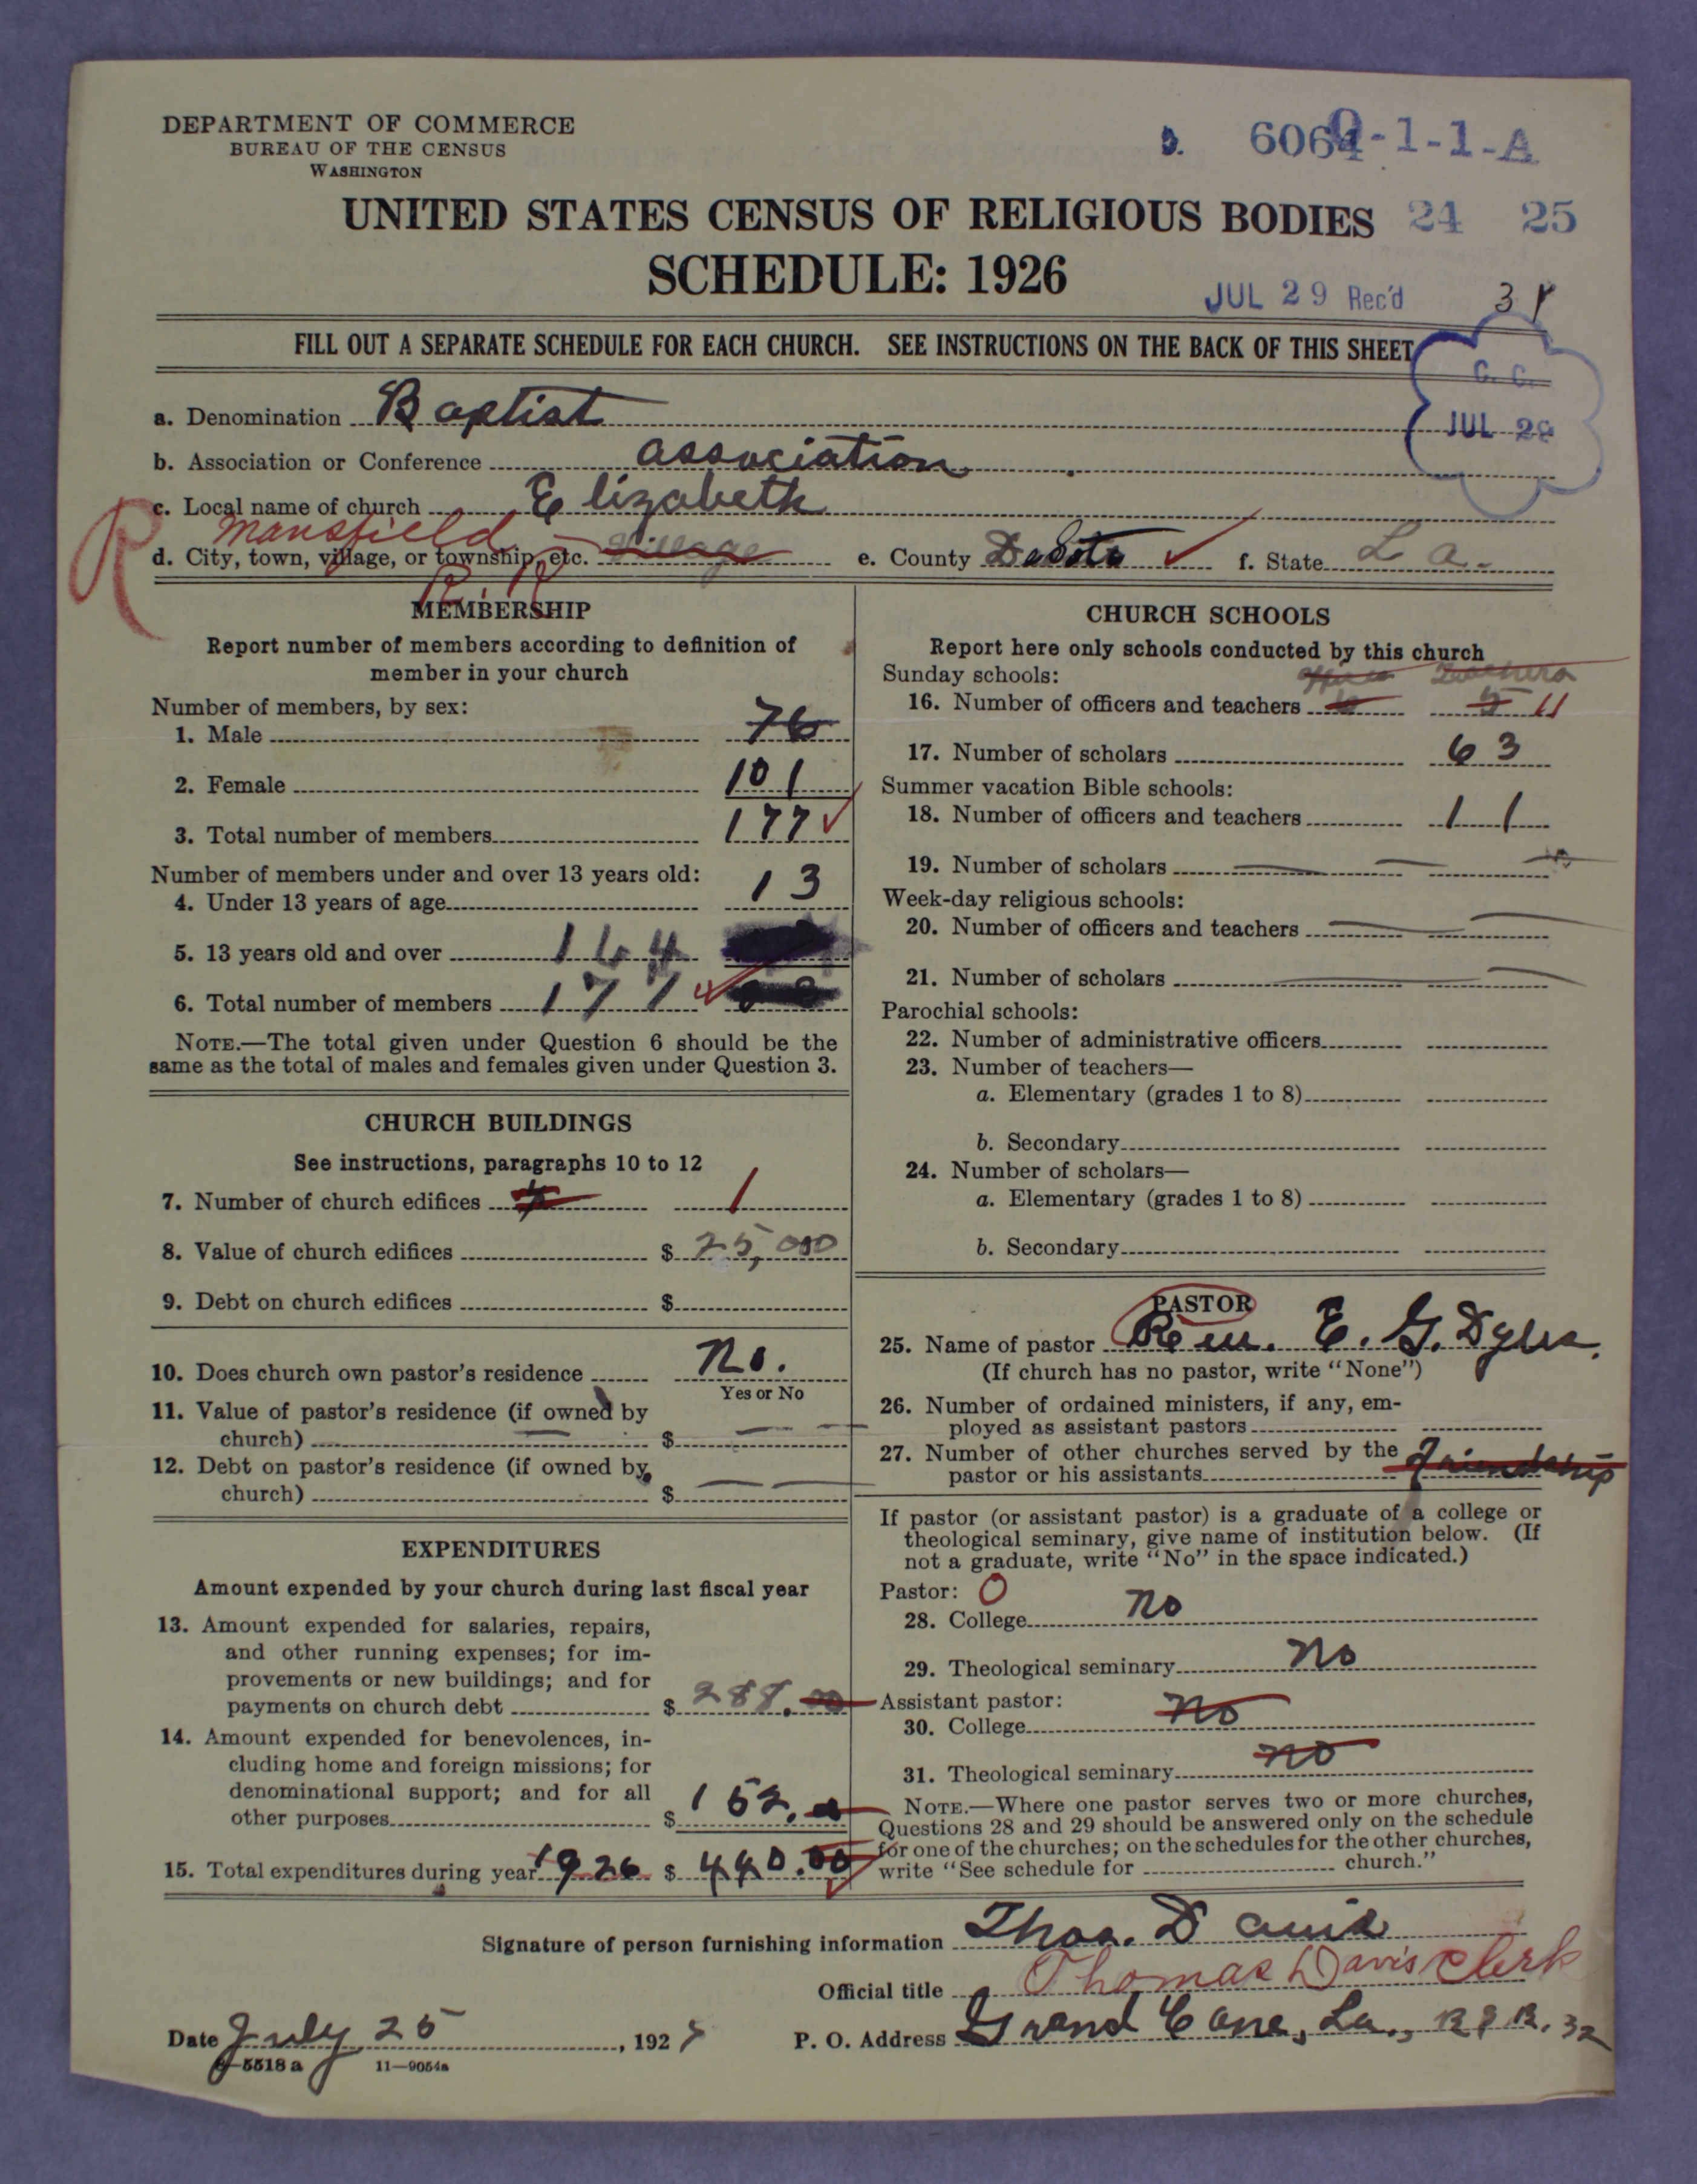 DEPARTMENT OF COMMERCE
BUREAU OF THE CENSUS
WASHINGTON
0-1-1-A
UNITED STATES CENSUS OF RELIGIOUS BODIES 24 25
SCHEDULE: 1926
JUL 29 Rec'd
FILL OUT A SEPARATE SCHEDULE FOR EACH CHURCH. SEE INSTRUCTIONS ON THE BACK OF THIS SHEET
C. C.
JUL 29
a. Denomination Baptist
b. Association or Conference association
c. Local name of church Elizabeth
R Mansfield R. R
d. City, town, village, or township, etc. village e. County DeSoto f. State La.
MEMBERSHIP
Report number of members according to definition of
member in your church
Number of members, by sex:
1. Male 76
2. Female 101
3. Total number of members 177
Number of members under and over 13 years old:
4. Under 13 years of age 13
5. 13 years old and over 164
6. Total number of members 177
NOTE.—The total given under Question 6 should be the
same as the total of males and females given under Question 3.
CHURCH BUILDINGS
See instructions, paragraphs 10 to 12
7. Number of church edifices 1
8. Value of church edifices $ 25,000
9. Debt on church edifices $
10. Does church own pastor's residence No.
Yes or No
11. Value of pastor's residence (if owned by
church) $
12. Debt on pastor's residence (if owned by
church) $
EXPENDITURES
Amount expended by your church during last fiscal year
13. Amount expended for salaries, repairs,
and other running expenses; for im-
provements or new buildings; and for
payments on church debt $ 288.00
14. Amount expended for benevolences, in-
cluding home and foreign missions; for
denominational support; and for all
other purposes $ 152.
15. Total expenditures during year 1926 $ 440.00
CHURCH SCHOOLS
Report here only schools conducted by this church
Sunday schools: Teachers
16. Number of officers and teachers 5 11
17. Number of scholars 63
Summer vacation Bible schools:
18. Number of officers and teachers 11
19. Number of scholars
Week-day religious schools:
20. Number of officers and teachers
21. Number of scholars
Parochial schools:
22. Number of administrative officers
23. Number of teachers—
a. Elementary (grades 1 to 8)
b. Secondary
24. Number of scholars—
a. Elementary (grades 1 to 8)
b. Secondary
PASTOR
25. Name of pastor Rev. E. G.
(If church has no pastor, write "None")
26. Number of ordained ministers, if any, em-
ployed as assistant pastors
27. Number of other churches served by the
pastor or his assistants Friendship
If pastor (or assistant pastor) is a graduate of a college or
theological seminary, give name of institution below. (If
not a graduate, write "No" in the space indicated.)
Pastor: O
28. College no
29. Theological seminary no
Assistant pastor:
30. College no
31. Theological seminary no
NOTE.—Where one pastor serves two or more churches,
Questions 28 and 29 should be answered only on the schedule
for one of the churches; on the schedules for the other churches,
write "See schedule for church."
Signature of person furnishing information Thos. Davis
Official title Thomas Davis Clerk
Date July 25, 1927 P. O. Address Grand Cane, La.,
8-5518 a 11-9054a